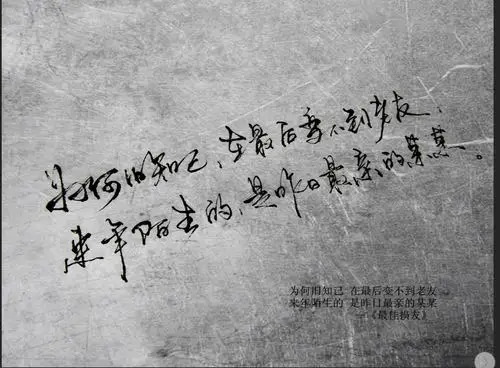 为何旧知己,在最后变不到老友,
来年陌生的,是昨日最亲的某某。
为何旧知己 在最后变不到老友
来年陌生的 是昨日最亲的某某
—《最佳损友》